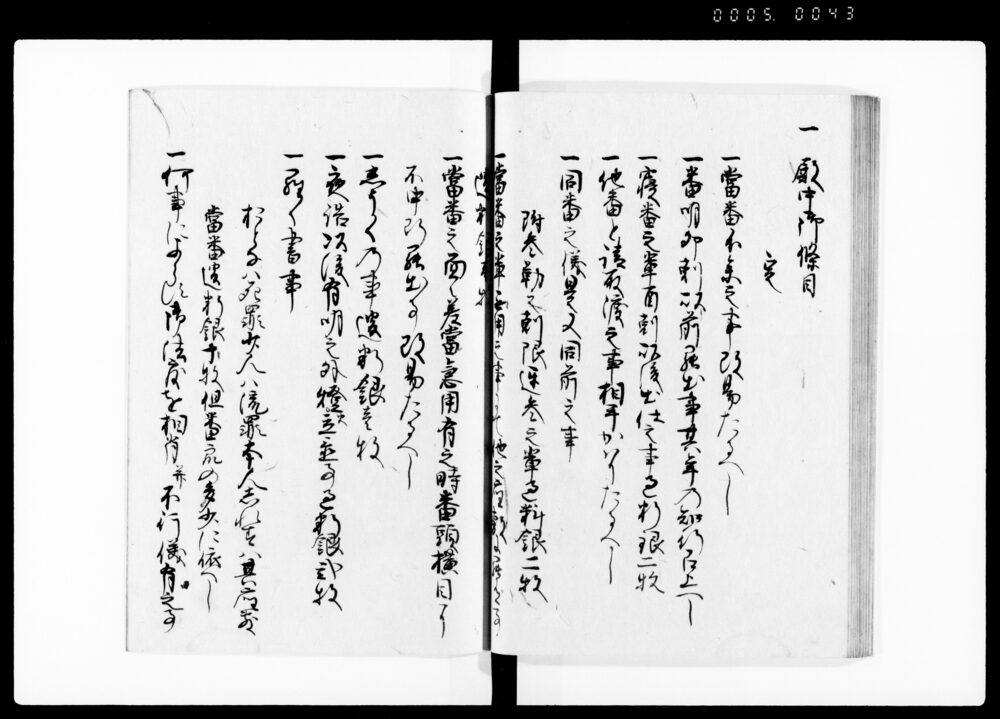 0005. 0043
一 殿中御條目
定
一當番不参之事改易たるへし
一番明卯刻以前罷出事其年の知行召上へし
一寝番之輩酉刻以後出仕之事過料銀二枚
一他番と請取渡之事相平かハりたるへし
一同番之儀是又同前之事
附参勤之刻限遅参之輩過料銀二枚
一當番之輩無用之事
過料銀
一當番之面々若當急用有之時番頭横目に
不申断罷出る者改易たるへし
一高らくの事過料銀壱枚
一夜詰以後有明之外燈立置事過料銀弐枚
一落書事
おとな八死罪少人八流罪本人しれさるハ其座敷
當番過料銀十枚但番衆の多少に依へし
一何事によらす御法度を相背并不行儀有之事